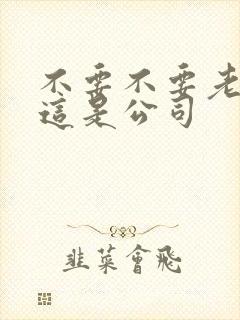 不要不要老
這是公司
韭菜會飛